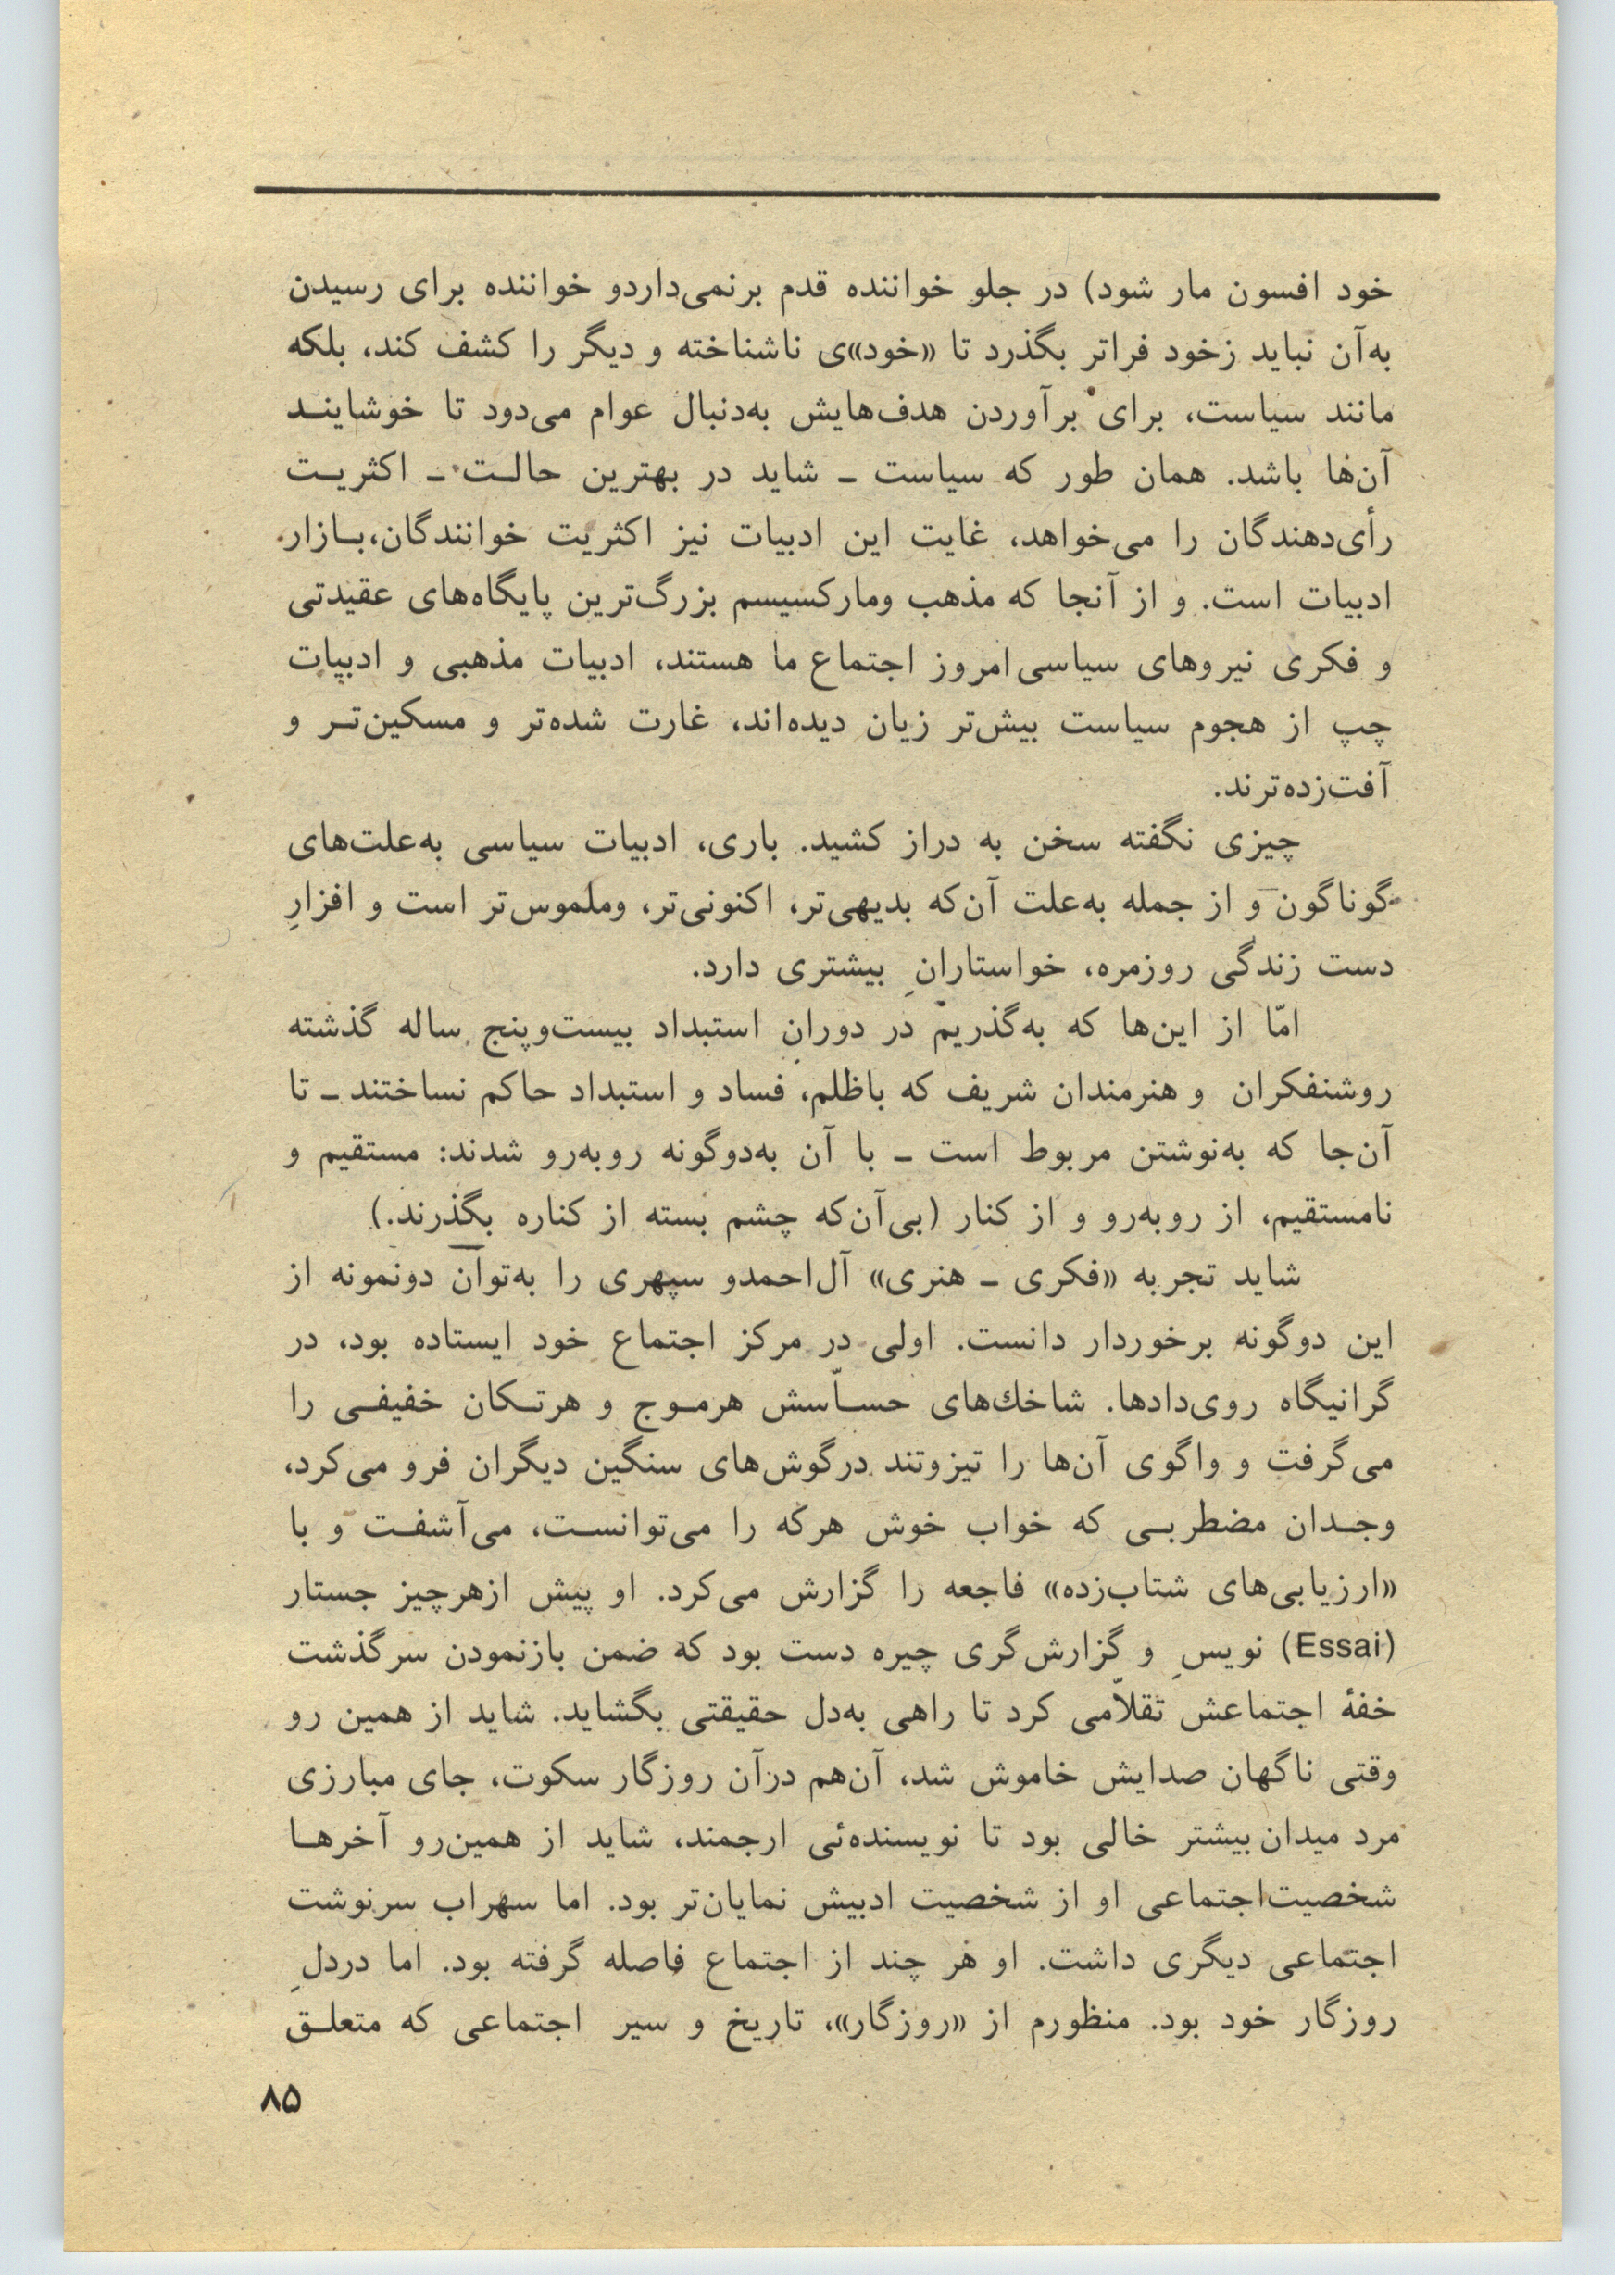 خود افسون مار شود) در جلو خواننده قدم برنمی‌داردو خواننده برای رسیدن
به‌آن نباید زخود فراتر بگذرد تا «خود»ی ناشناخته و دیگر را کشف کند، بلکه
مانند سیاست، برای برآوردن هدف‌هایش به‌دنبال عوام می‌دود تا خوشاینـد
آن‌ها باشد. همان طور که سیاست ـ شاید در بهترین حالـت ـ اکثریـت
رأی‌دهندگان را می‌خواهد، غایت این ادبیات نیز اکثریت خوانندگان،بـازار
ادبیات است. و از آنجا که مذهب ومارکسیسم بزرگ‌ترین پایگاه‌های عقیدتی
و فکری نیروهای سیاسی امروز اجتماع ما هستند، ادبیات مذهبی و ادبیات
چپ از هجوم سیاست بیش‌تر زیان دیده‌اند، غارت شده‌تر و مسکین‌تـر و
آفت‌زده‌ترند.
چیزی نگفته سخن به دراز کشید. باری، ادبیات سیاسی به‌علت‌های
گوناگون و از جمله به‌علت آن‌که بدیهی‌تر، اکنونی‌تر، وملموس‌تر است و افزارِ
دست زندگی روزمره، خواستارانِ بیشتری دارد.
امّا از این‌ها که به‌گذریم در دورانِ استبداد بیست‌وپنج ساله گذشته
روشنفکران و هنرمندان شریف که باظلم، فساد و استبداد حاکم نساختند ـ تا
آن‌جا که به‌نوشتن مربوط است ـ با آن به‌دوگونه روبه‌رو شدند: مستقیم و
نامستقیم، از روبه‌رو و از کنار (بی‌آن‌که چشم بسته از کناره بگذرند.)
شاید تجربه «فکری ـ هنری» آل‌احمدو سپهری را به‌توان دونمونه از
این دوگونه برخوردار دانست. اولی در مرکز اجتماع خود ایستاده بود، در
گرانیگاه روی‌دادها. شاخك‌های حسـاّسش هرمـوج و هرتـکان خفیفـی را
می‌گرفت و واگوی آن‌ها را تیزوتند درگوش‌های سنگین دیگران فرو می‌کرد،
وجـدان مضطربـی که خواب خوش هرکه را می‌توانسـت، می‌آشفـت و با
«ارزیابی‌های شتاب‌زده» فاجعه را گزارش می‌کرد. او پیش ازهرچیز جستار
(Essai) نویسِ و گزارش‌گری چیره دست بود که ضمن بازنمودن سرگذشت
خفهٔ اجتماعش تقلاّمی کرد تا راهی به‌دل حقیقتی بگشاید. شاید از همین رو
وقتی ناگهان صدایش خاموش شد، آن‌هم درآن روزگار سکوت، جای مبارزی
مرد میدان بیشتر خالی بود تا نویسنده‌ئی ارجمند، شاید از همین‌رو آخرهـا
شخصیت‌اجتماعی او از شخصیت ادبیش نمایان‌تر بود. اما سهراب سرنوشت
اجتماعی دیگری داشت. او هر چند از اجتماع فاصله گرفته بود. اما دردلِ
روزگار خود بود. منظورم از «روزگار»، تاریخ و سیر اجتماعی که متعلـق
۸۵